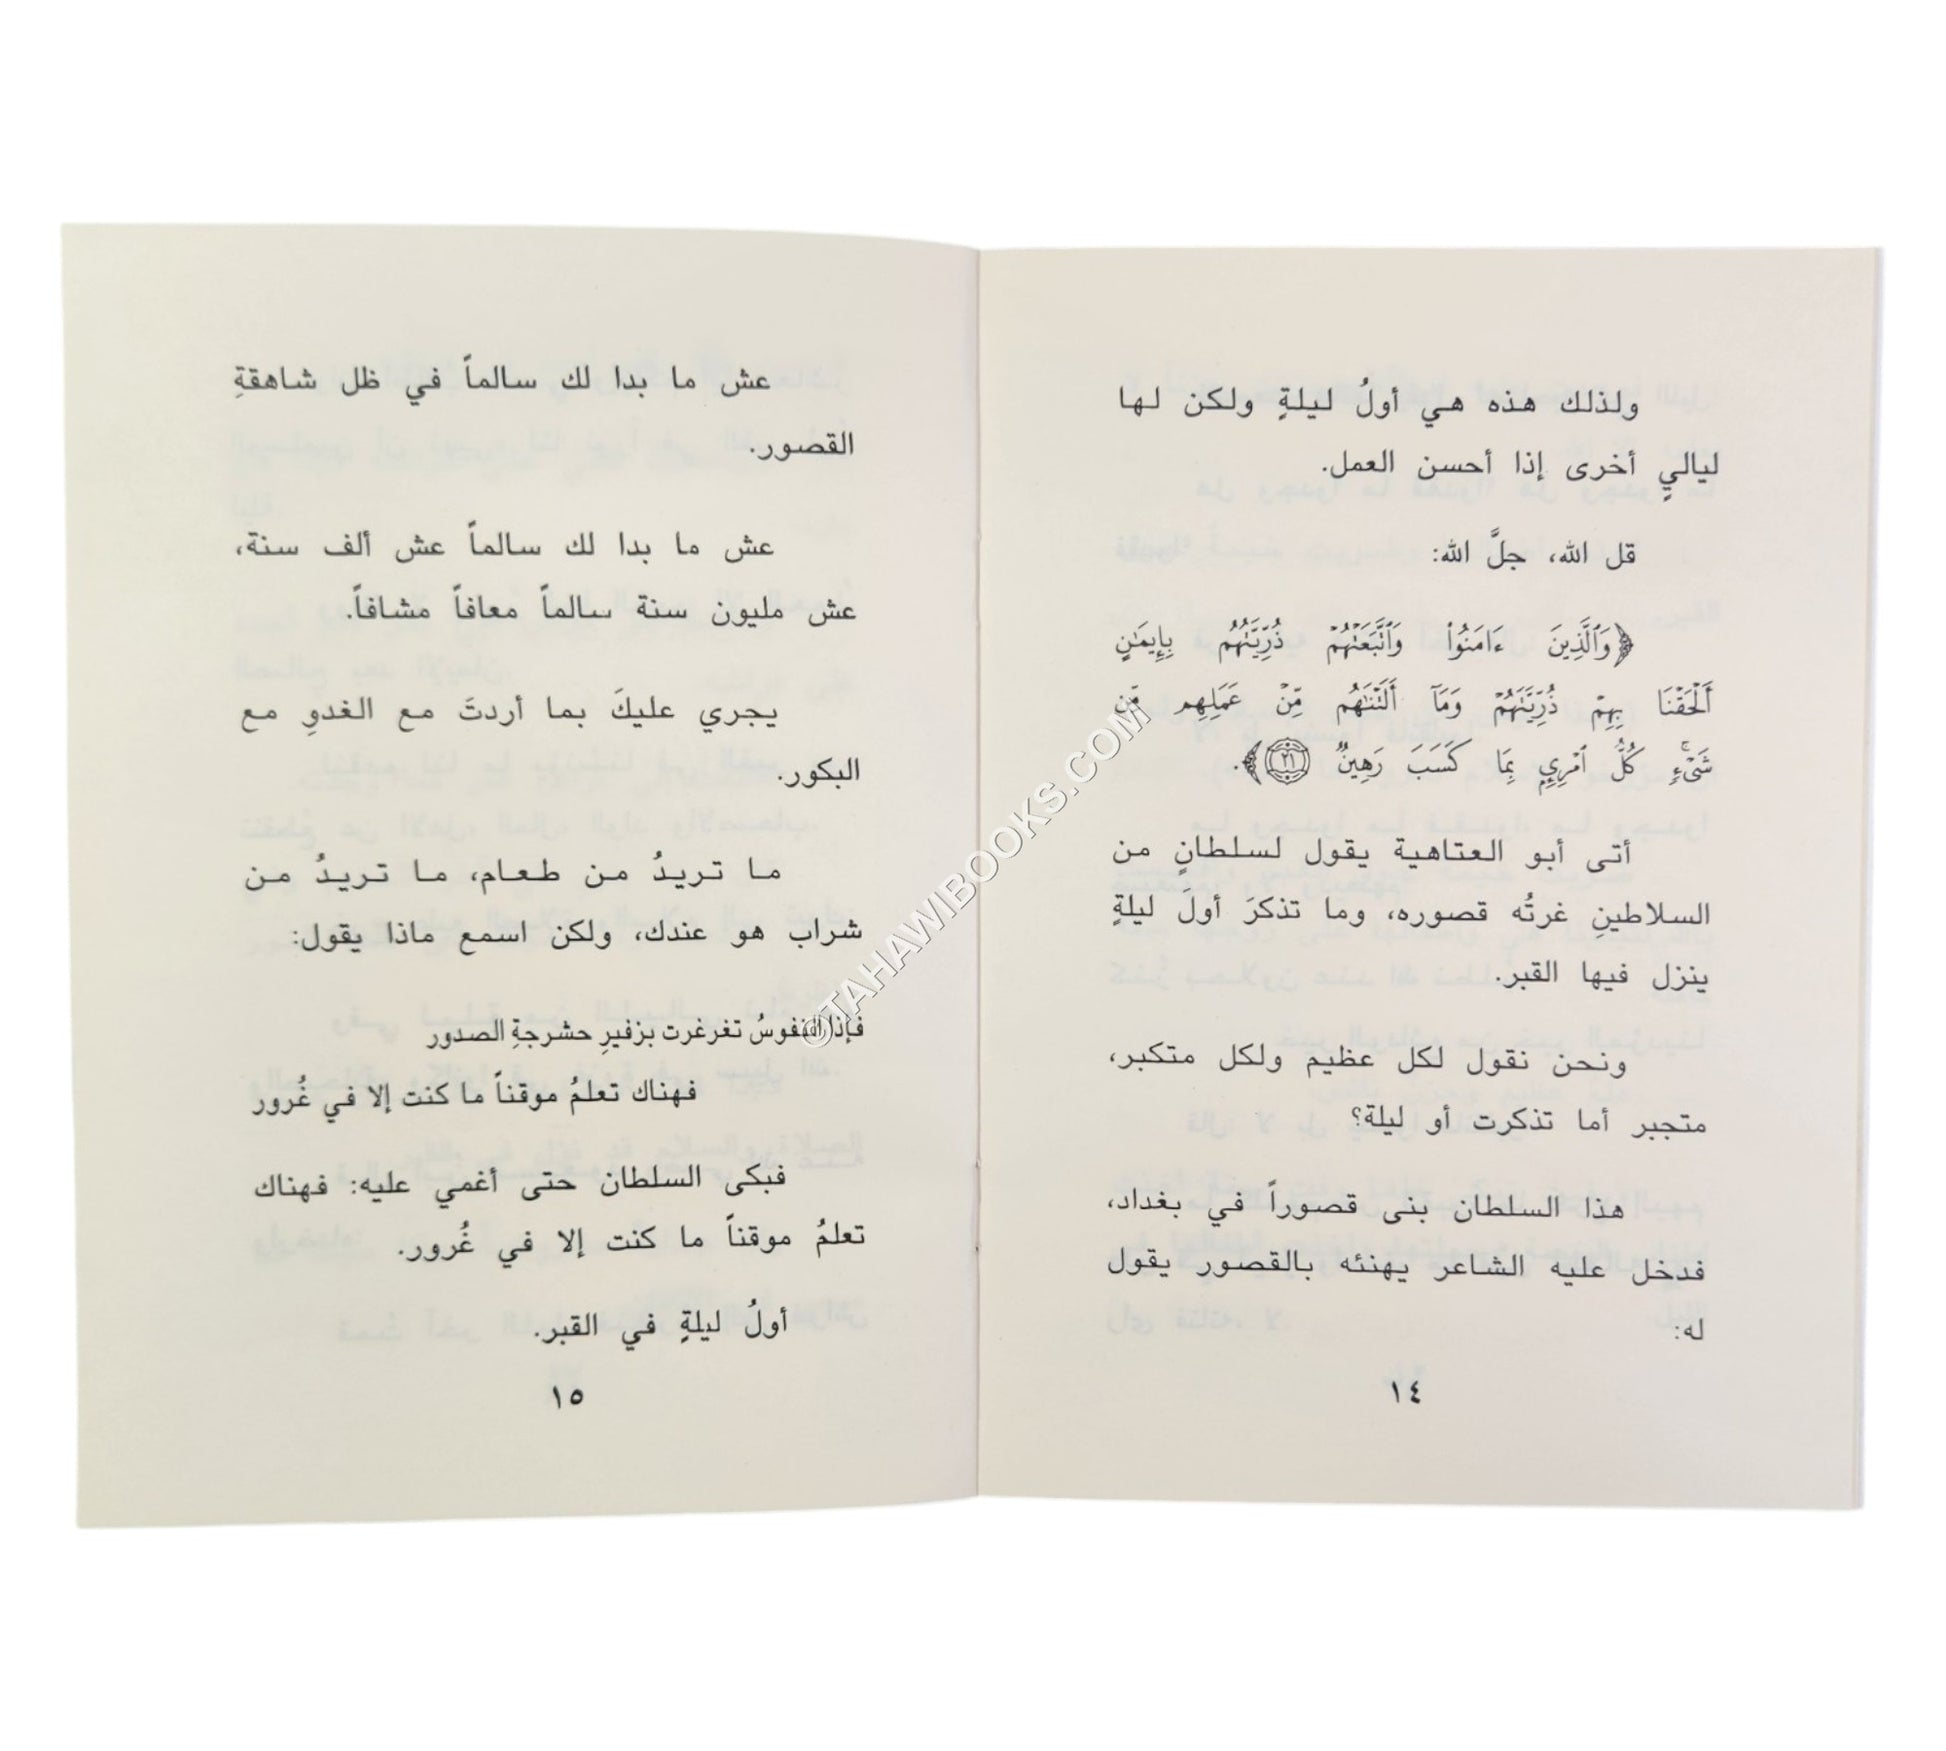 ولذلك هذه هي أولُ ليلةٍ ولكن لها
ليالي أخرى إذا أحسن العمل.
قل الله، جلَّ الله:
﴿وَٱلَّذِينَ ءَامَنُوا۟ وَٱتَّبَعَتْهُمْ ذُرِّيَّتُهُم بِإِيمَٰنٍ
أَلْحَقْنَا بِهِمْ ذُرِّيَّتَهُمْ وَمَآ أَلَتْنَٰهُم مِّنْ عَمَلِهِم مِّن
شَىْءٍ كُلُّ ٱمْرِئٍ بِمَا كَسَبَ رَهِينٌ ٢١﴾.
أتى أبو العتاهية يقول لسلطانٍ من
السلاطينِ غرتُه قصوره، وما تذكرَ أولَ ليلةٍ
ينزل فيها القبر.
ونحن نقول لكل عظيم ولكل متكبر،
متجبر أما تذكرت أو ليلة؟
هذا السلطان بنى قصوراً في بغداد،
فدخل عليه الشاعر يهنئه بالقصور يقول
له:
١٤
عش ما بدا لك سالماً في ظل شاهقةِ
القصور.
عش ما بدا لك سالماً عش ألف سنة،
عش مليون سنة سالماً معافاً مشافاً.
يجري عليكَ بما أردتَ مع الغدوِ مع
البكور.
ما تريدُ من طعام، ما تريدُ من
شراب هو عندك، ولكن اسمع ماذا يقول:
فإذا النفوسُ تغرغرت بزفيرِ حشرجةِ الصدور
فهناك تعلمُ موقناً ما كنت إلا في غُرور
فبكى السلطان حتى أغمي عليه: فهناك
تعلمُ موقناً ما كنت إلا في غُرور.
أولُ ليلةٍ في القبر.
١٥
©TAHAWIBOOKS.COM